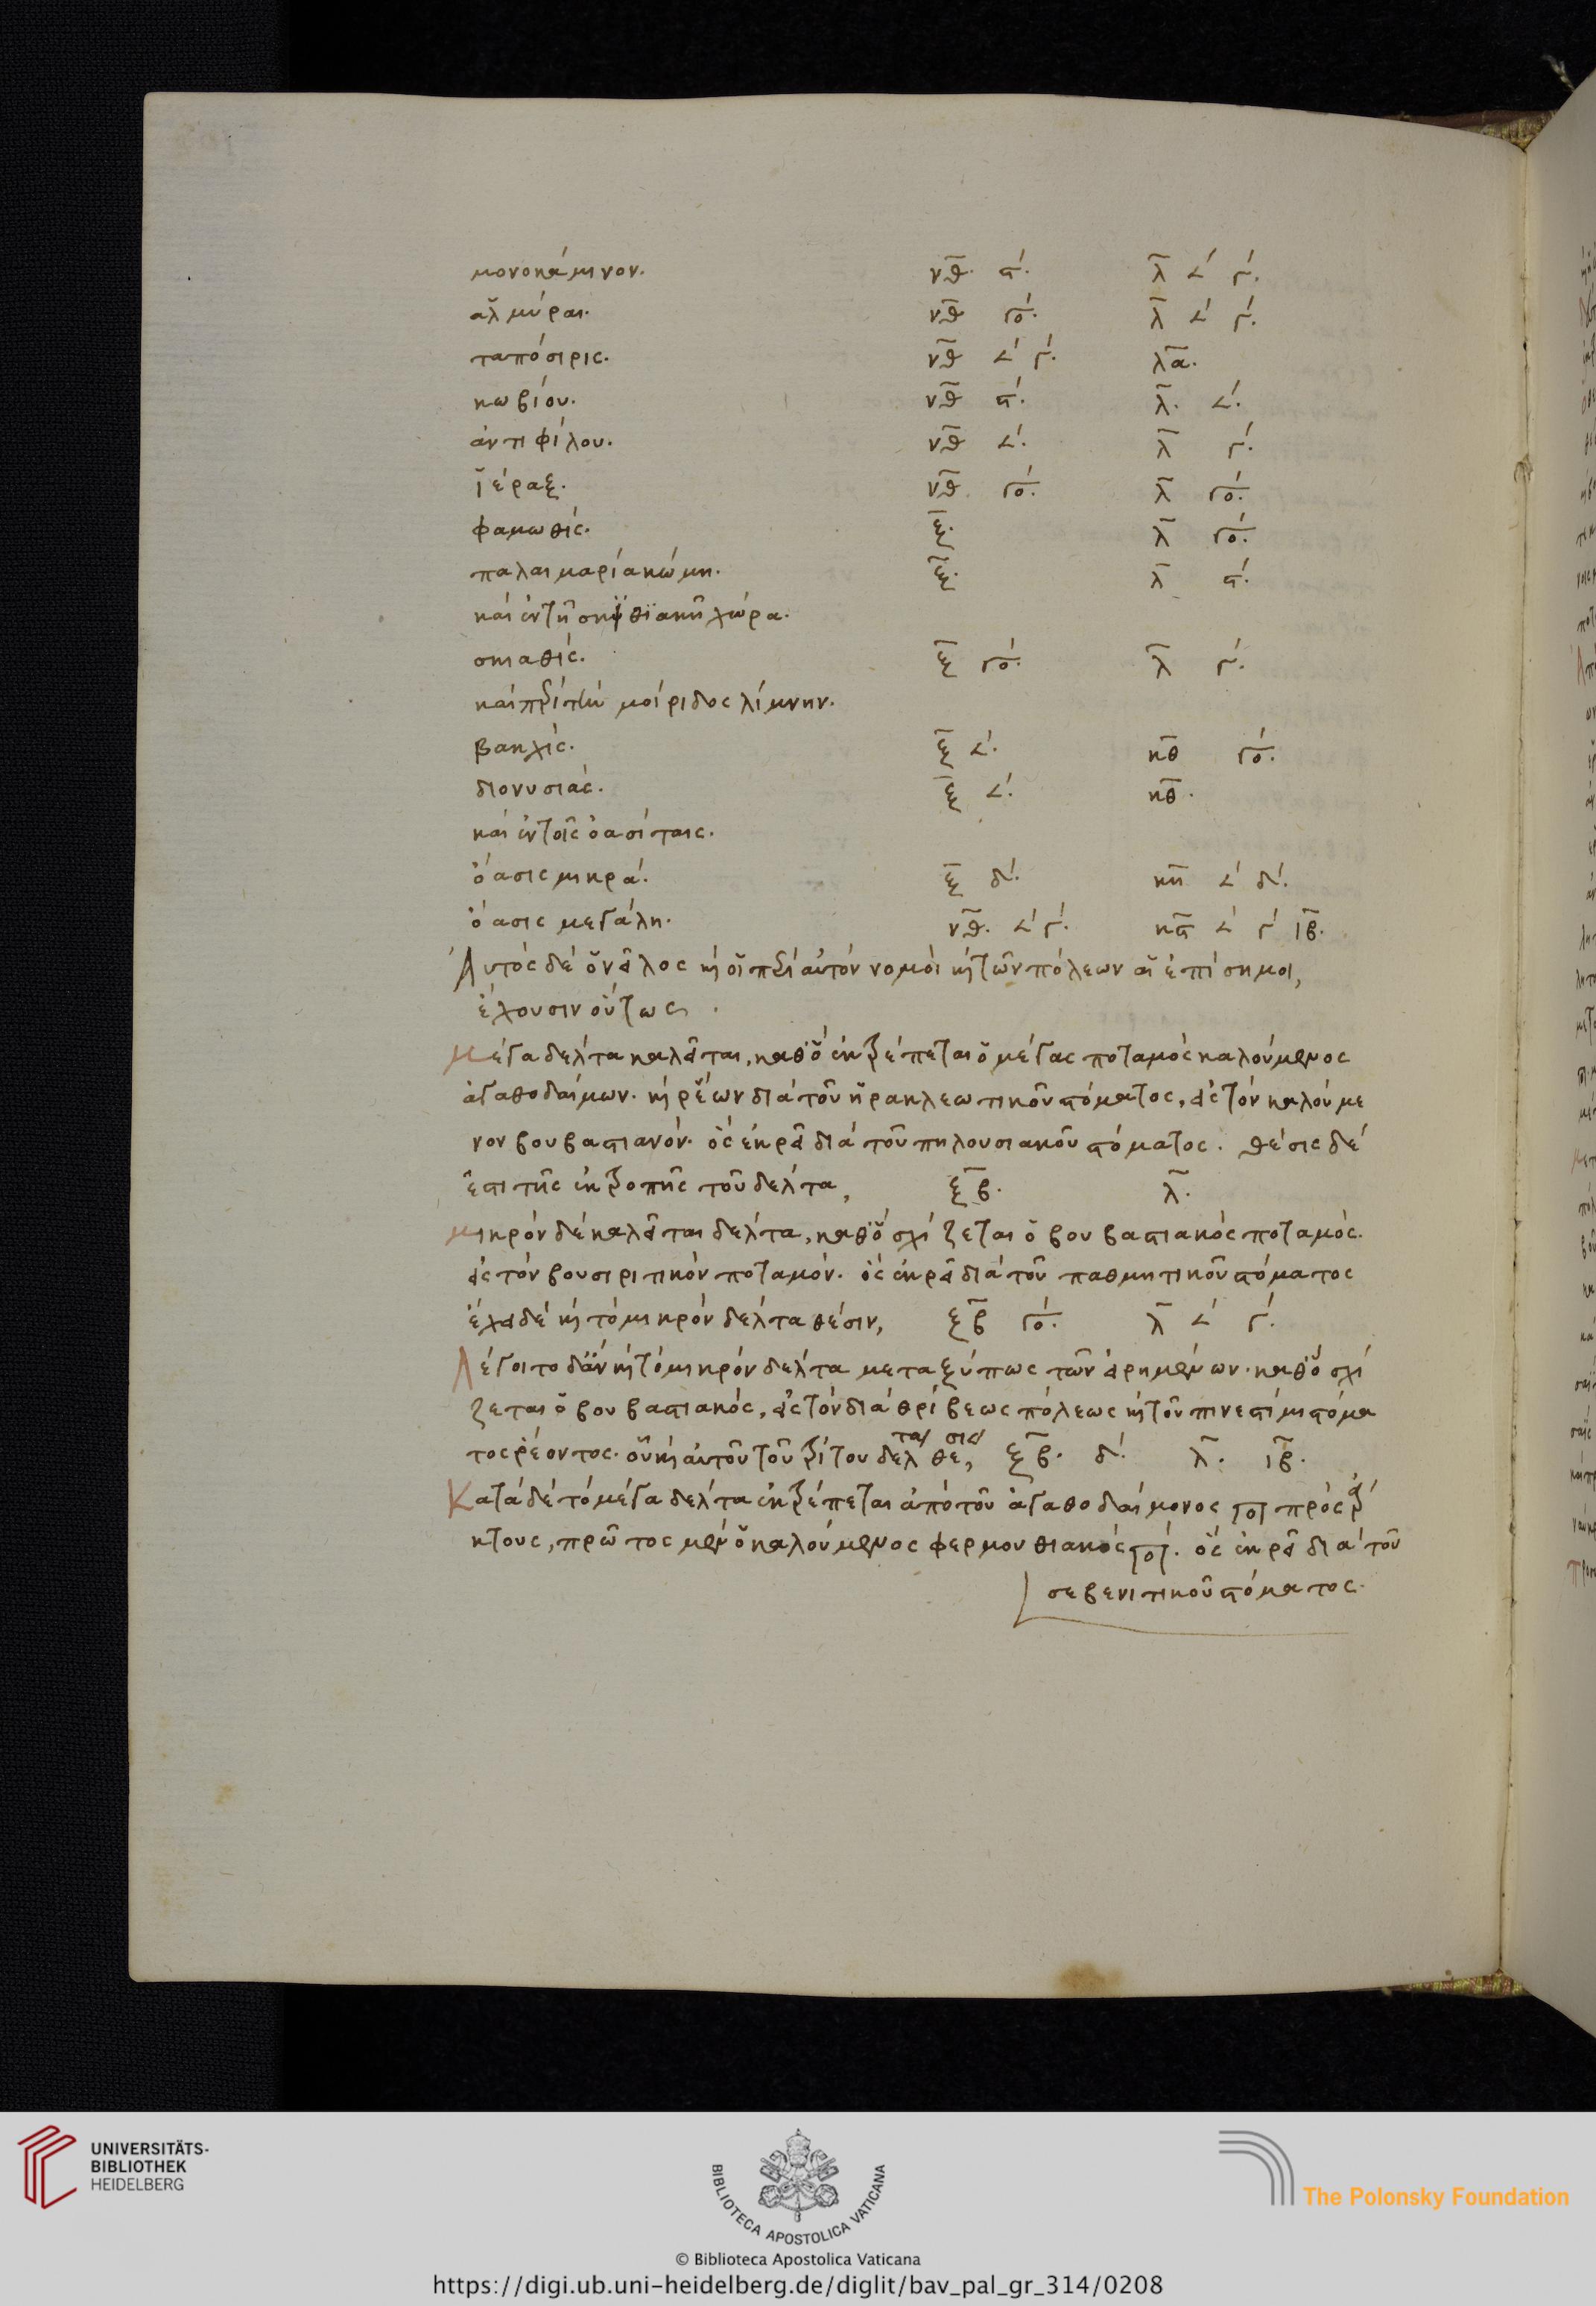 μονοκάμινον. νθ ϛ. λ ∠ γ.
ἁλμύραι. νθ γο. λ ∠ γ.
ταπόσιρις. νθ ∠ γ. λα.
κωβίου. νθ ϛ. λ. ∠.
ἀντιφίλου. νθ ∠. λ γ.
ἱέραξ. νθ γο. λ γο.
φαμωθίς. ξ. λ γο.
παλαιμαρία κώμη. ξ. λ ϛ.
καὶ ἐν τῆ σκυθϊακῆ χώρα.
σκιαθίς. ξ γο. λ γ.
καὶ περὶ τὴν μοίριδος λίμνην.
βακχίς. ξ ∠. κθ γο.
διονυσιάς. ξ ∠. κθ.
καὶ ἐν τοῖς ὀασίταις.
ὄασις μικρά. ξ δ. κη ∠ δ.
ὄασις μεγάλη. νθ. ∠ γ. κϛ ∠ γ ιβ.
Αὐτὸς δὲ ὁ νεῖλος καὶ οἱ περὶ αὐτὸν νομοὶ καὶ τῶν πόλεων αἱ ἐπίσημοι,
ἔχουσιν οὕτως.
μέγα δέλτα καλεῖται, καθὃ ἐκτρέπεται ὁ μέγας ποταμὸς καλούμενος
ἀγαθοδαίμων. καὶ ῥέων διὰ τοῦ ἡρακλεωτικοῦ στόματος, εἰς τὸν καλούμε
νον βουβαστιανόν. ὃς ἐκρεῖ διὰ τοῦ πηλουσιακοῦ στόματος. θέσις δέ
ἐστι τῆς ἐκτροπῆς τοῦ δέλτα, ξβ. λ.
μικρὸν δὲ καλεῖται δέλτα, καθὃ σχίζεται ὁ βουβαστιακὸς ποταμός.
εἰς τὸν βουσιριτικὸν ποταμόν. ὃς ἐκρεῖ διὰ τοῦ παθμητικοῦ στόματος
ἔχει δὲ καὶ τὸ μικρὸν δέλτα θέσιν, ξβ γο. λ ∠ γ.
Λέγοιτο δ' ἂν καὶ τὸ μικρὸν δέλτα μεταξύ πως τῶν εἰρημένων. καθὃ σχί
ζεται ὁ βουβαστιακός, εἰς τὸν διὰ θρίβεως πόλεως καὶ τοῦ πινεστίμι στόμα
τος ῥέοντος. οὗ καὶ αὐτοῦ τοῦ τρίτου δελτα θεσις, ξβ. δ. λ. ιβ.
Κατὰ δὲ τὸ μέγα δέλτα ἐκτρέπεται ἀπὸ τοῦ ἀγαθοδαίμονος ποτ πρὸς ἄρ
κτους, πρῶτος μὲν ὁ καλούμενος φερμουθιακὸς ποτ. ὃς ἐκρεῖ διὰ τοῦ
σεβενιτικοῦ στόματος.
UNIVERSITÄTS-
BIBLIOTHEK
HEIDELBERG
BIBLIOTECA APOSTOLICA VATICANA
The Polonsky Foundation
© Biblioteca Apostolica Vaticana
https://digi.ub.uni-heidelberg.de/diglit/bav_pal_gr_314/0208